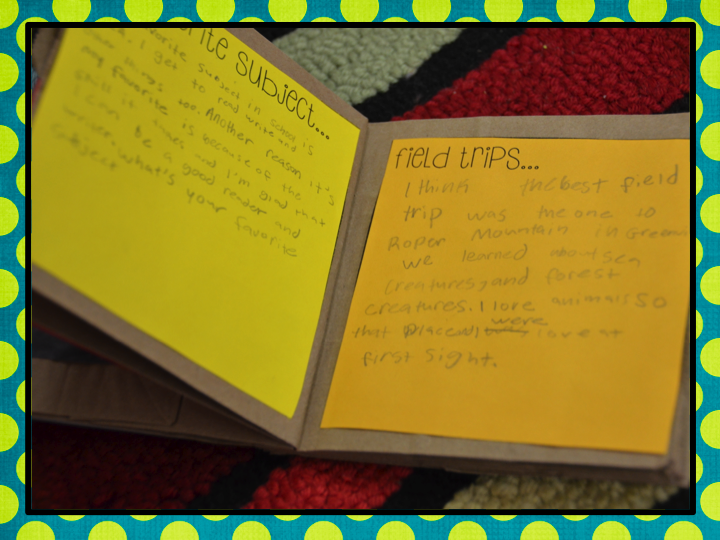 rite subject...
favorite subject in school is
I get to read write and
things too. Another reason it's
my favorite is because of the
skill it and I'm glad that
I can be a good reader and
writer. What's your favorite
subject
field trips...
I think the best field
trip was the one to
Roper Mountain in Green
we learned about sea
creatures, and forest
creatures. I love animals so
that place and I were love at
first sight.